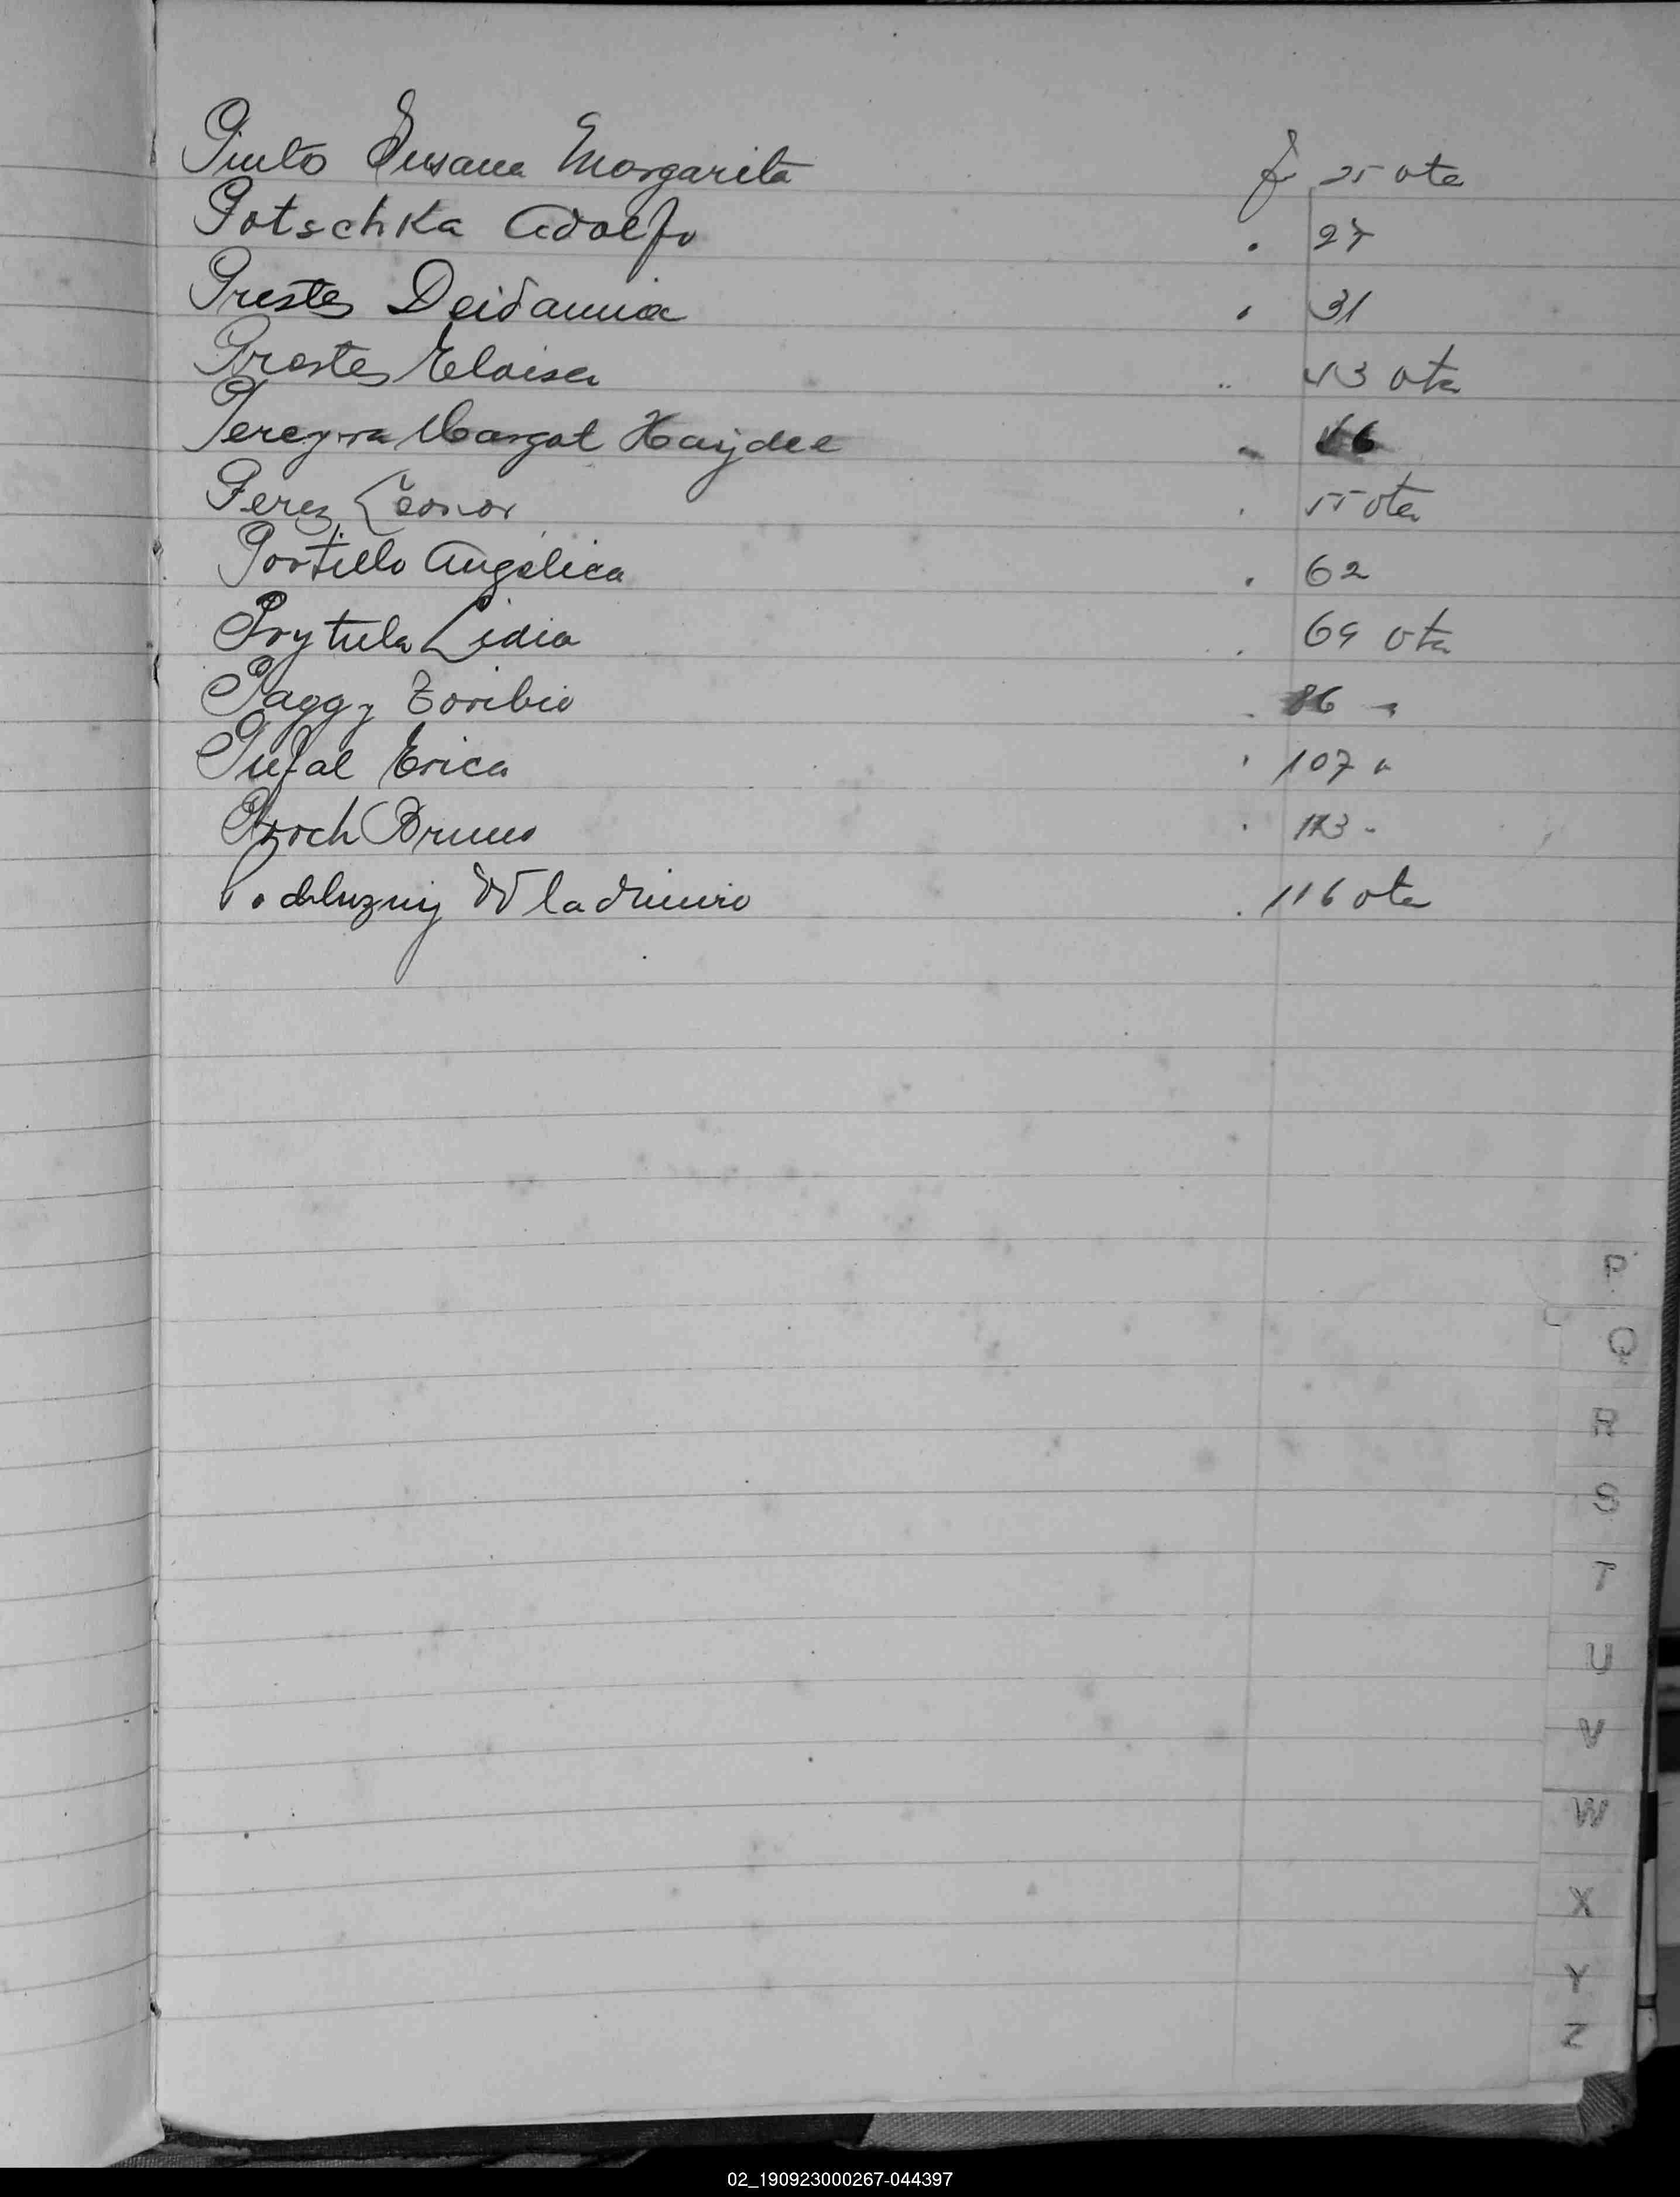 Pinto Susana Margarita f 25 vta
Potschka Adolfo . 27
Prestes Deidamia . 31
Prestes Eloisa .. 43 vta
Pereyra Margot Haydee 46
Perez Leonor . 55 vta
Portillo Angélica . 62
Prytula Lidia . 69 vta
Paggy Toribio . 86 "
Pufal Erica . 107 "
Proch Bruno . 113 "
Podeluzny Wladimiro . 116 vta
P
Q
R
S
T
U
V
W
X
Y
Z
02_190923000267-044397